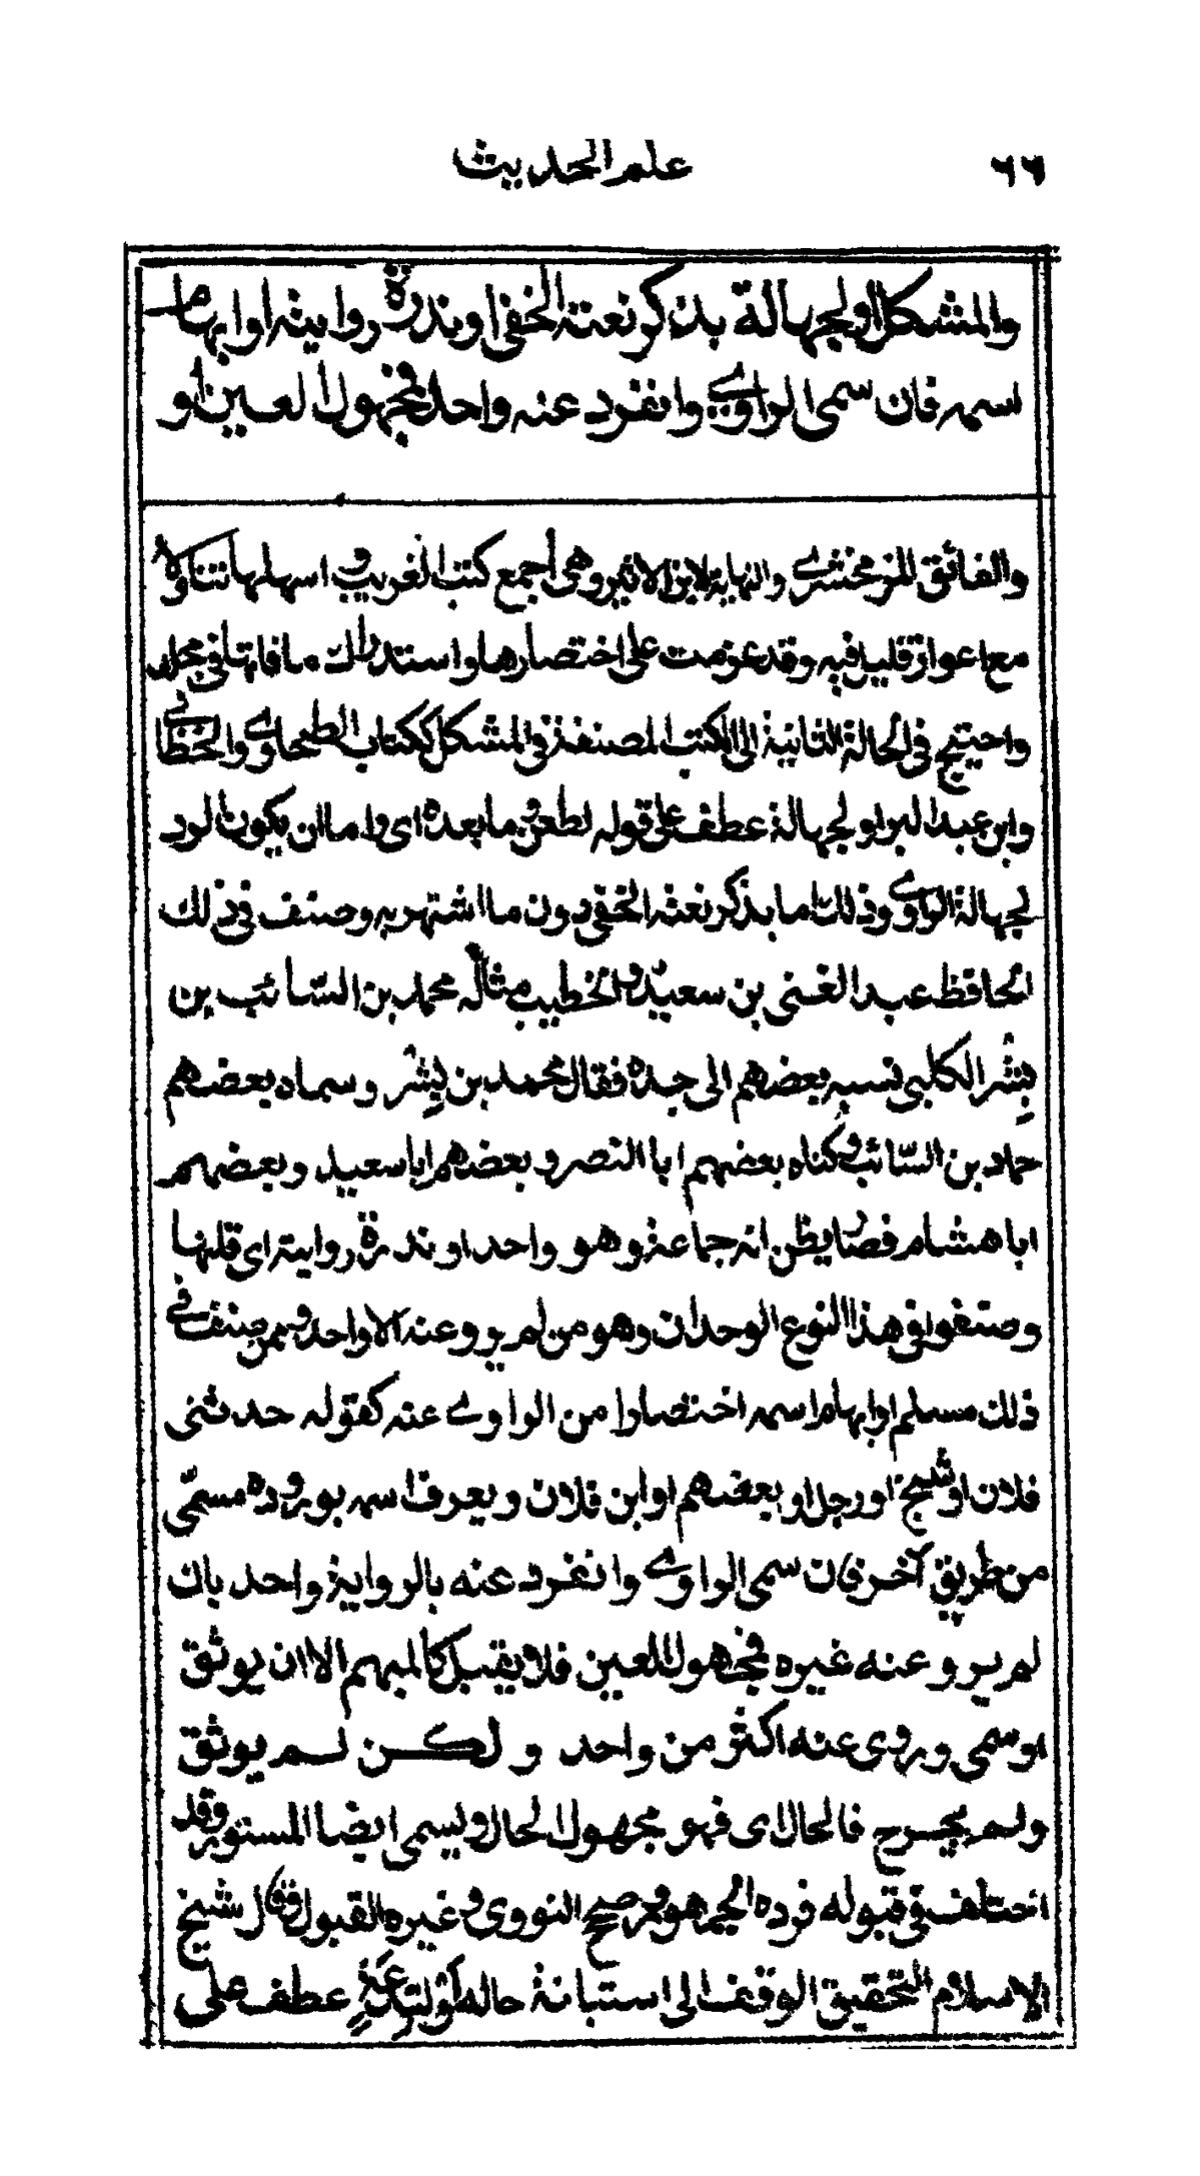 ٦٦
علم الحديث
والمشكل او لجهالة بذكر نعته الخفي او ندرة روايته او ابهام
اسمه فان سمى الراوي وانفرد عنه واحد فمجهول العين او
والفائق للزمخشري والنهاية لابن الاثير وهي اجمع كتب الغريب و اسهلها تناولا
مع اعواز قليل فيه وقد عزمت على اختصارها واستدراك ما فاتها في مجلد
واحتيج في الحالة الثانية الى الكتب المصنفة في المشكل ككتاب الطحاوي والخطابي
وابن عبد البر او لجهالة عطف على قوله لطعن وما بعده اي واما ان يكون الرد
لجهالة الراوي وذلك اما بذكر نعته الخفي دون ما اشتهر به وصنف في ذلك
الحافظ عبد الغني بن سعيد والخطيب مثاله محمد بن السّائب بن
بِشْر الكلبي نسبه بعضهم الى جده فقال محمد بن بِشْر وسماه بعضهم
حماد بن السّائب وكناه بعضهم ابا النصر و بعضهم ابا سعيد وبعضهم
ابا هشام فصار يظن انه جماعة وهو واحد او ندرة روايته اي قلتها
وصنفوا في هذا النوع الوحدان وهو من لم يرو عنه الا واحد وممن صنف في
ذلك مسلم او ابهام اسمه اختصارا من الراوي عنه كقوله حدثني
فلان او شيخ او رجل او بعضهم او ابن فلان ويعرف اسمه بوروده مسمّى
من طريق آخر فان سمى الراوي وانفرد عنه بالرواية واحد بان
لم يرو عنه غيره فمجهول العين فلا يقبل كالمبهم الا ان يوثق
او سمى وروى عنه اكثر من واحد و لكن لم يوثق
ولم يجرح فالحال اي فهو مجهول الحال ويسمى ايضا المستور وقد
اختلف في قبوله فرده الجمهور وصحح النووي وغيره القبول وقال شيخ
الاسلام التحقيق الوقف الى استبانة حاله او لبدعةٍ عطف على